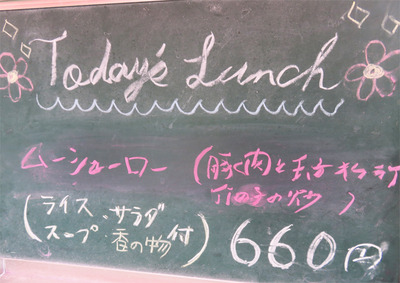 Today's Lunch
ムーシューロー (豚肉と玉子キクラゲ
竹の子の炒め)
(ライス・サラダ
スープ・香の物付) 660円